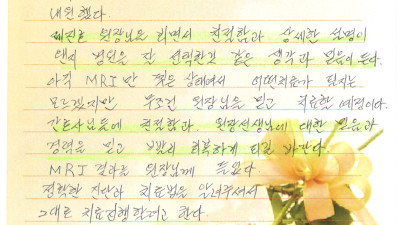 내원했다.
원장님을 뵈면서 친절함과 상세한 설명이
병원을 잘 선택한것 같은 생각과 믿음이 든다.
아직 MRI만 찍은 상태여서 어떤치료가 될지는
모르겠지만 무조건 원장님을 믿고 치료할 예정이다.
간호사님들에 친절함과, 원장선생님에 대한 믿음과
경력을 믿고 빨리 회복하게 되길 바란다.
MRI 결과는 원장님께 들었다
정확한 진단과 치료법을 알려주셔서
그대로 치료진행할려고 한다.